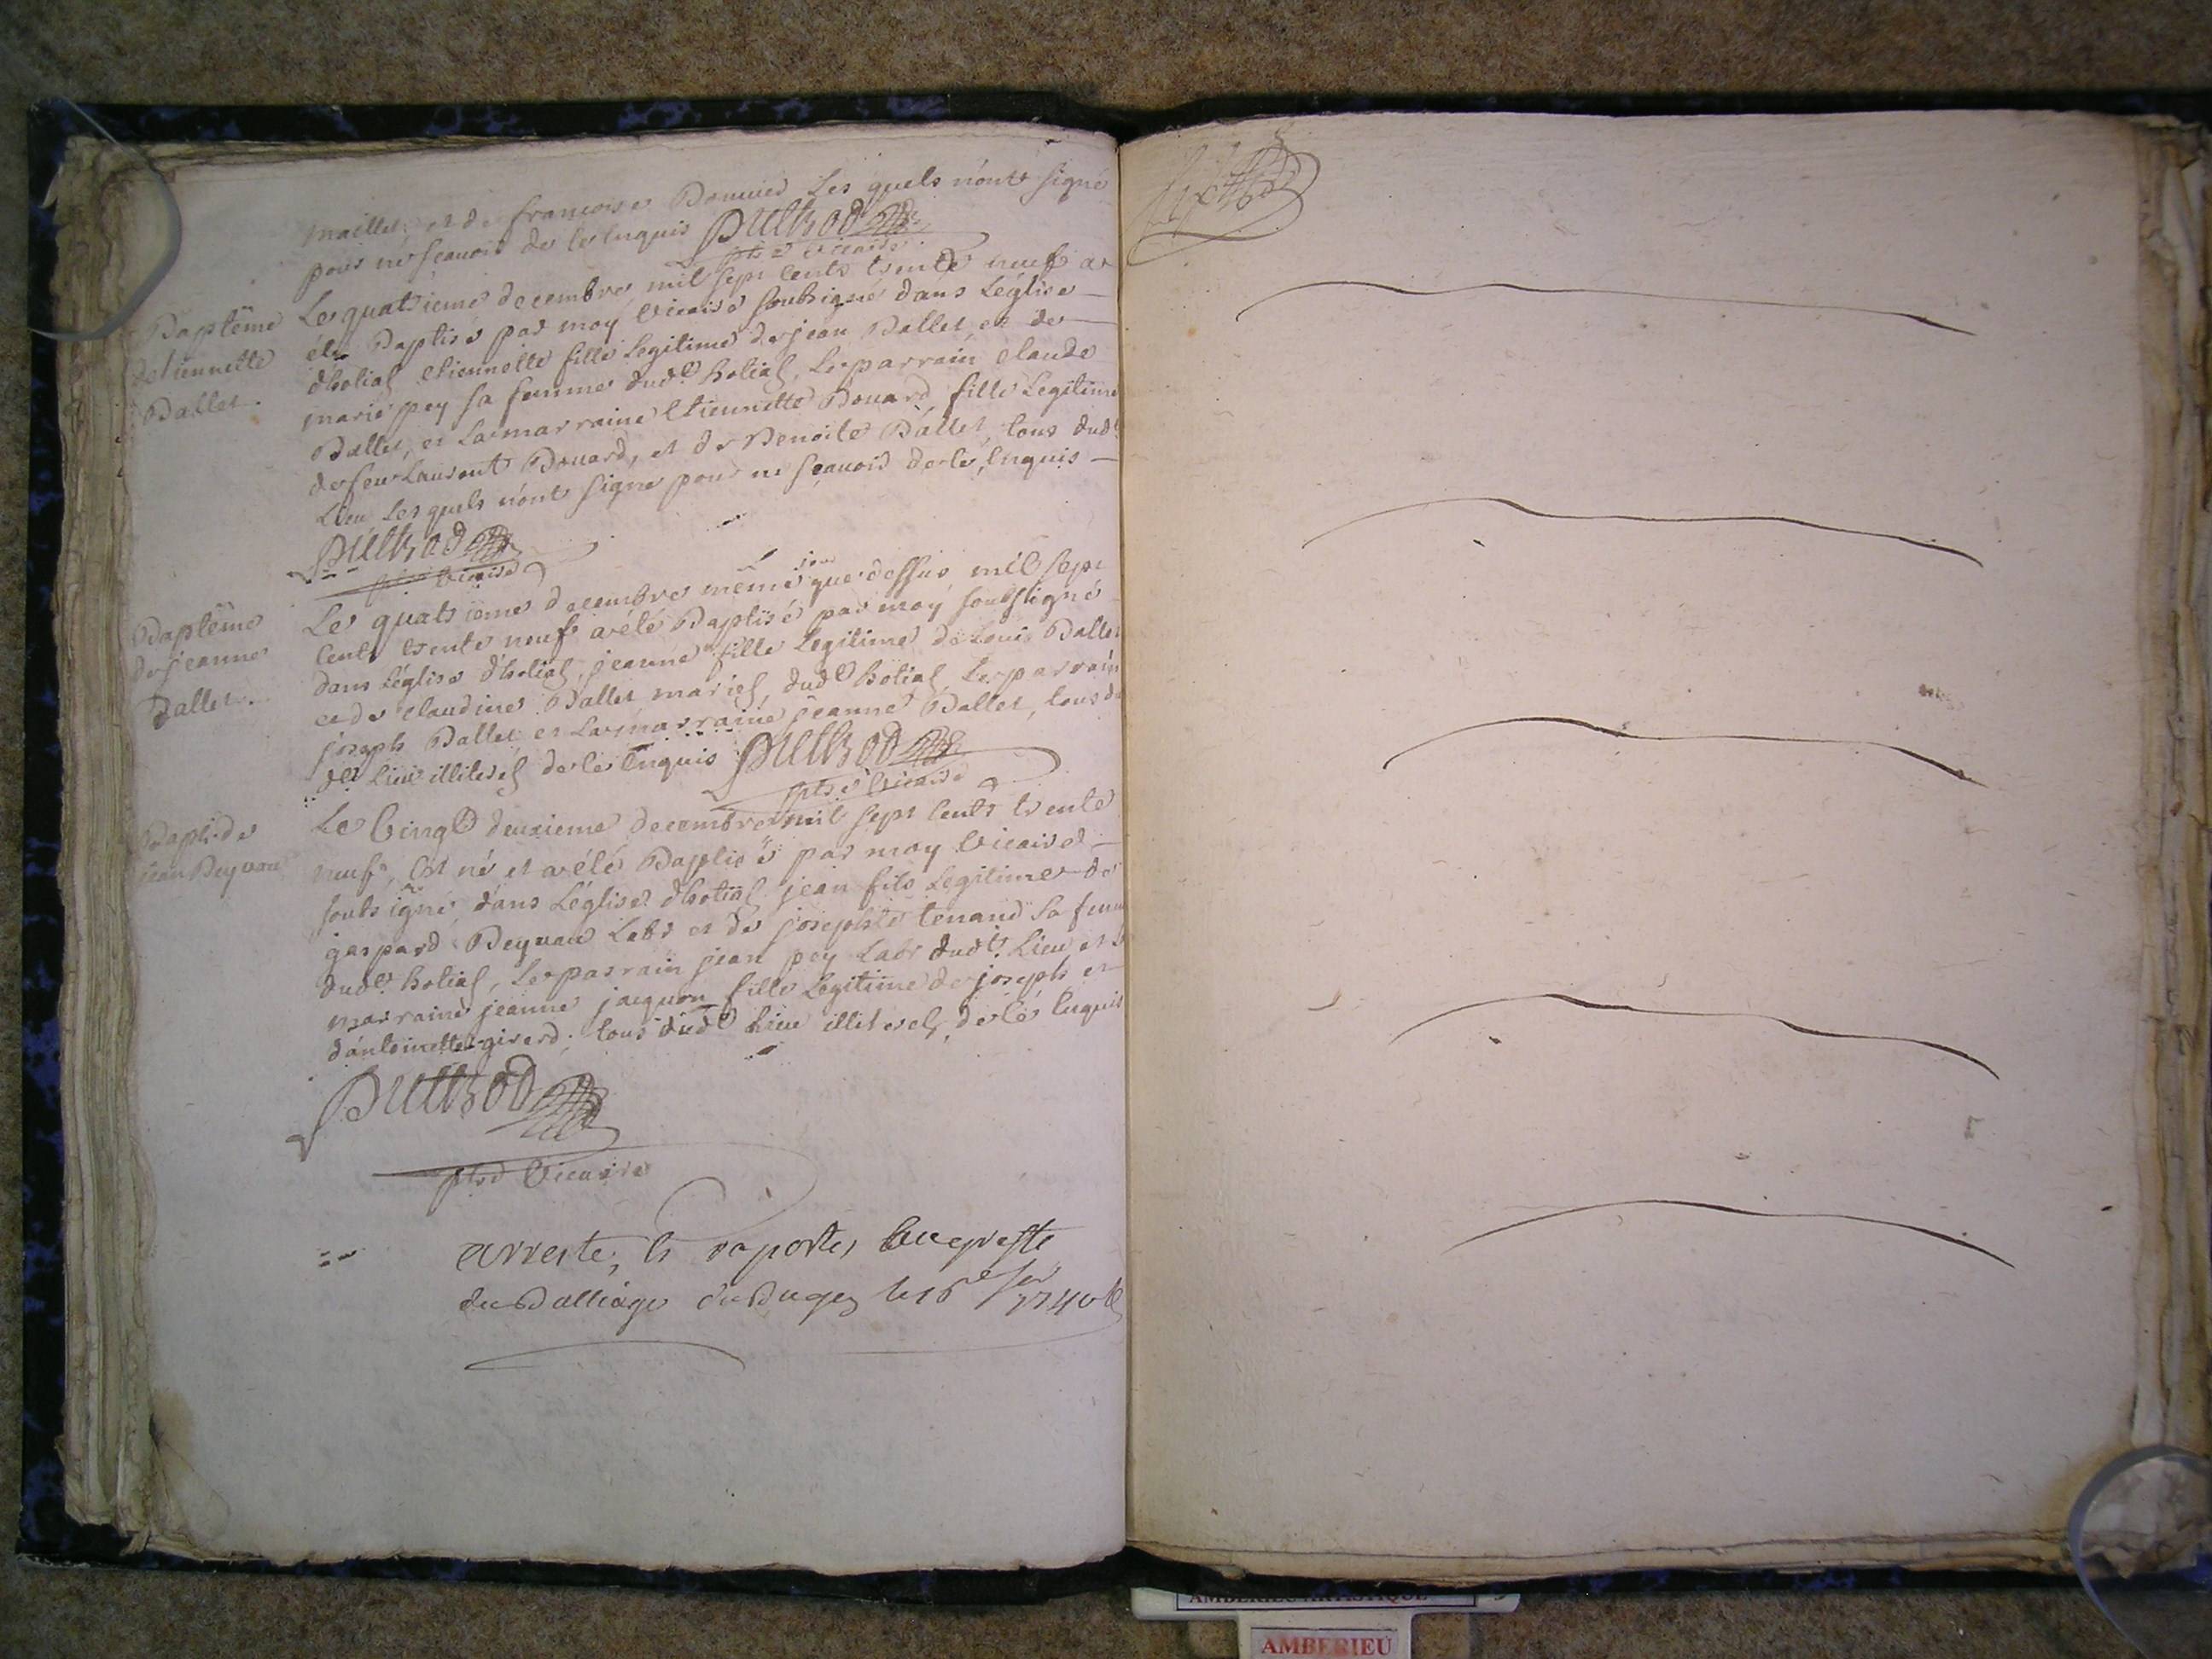 maillet et de francoise Bonnier Les quels n'ont signé
pour ne scavoir de ce Enquis
ptre vicaire
Baptême
detiennette
Ballet.
Le quatrieme decembre mil sept cents trente neuf a
été Baptisé par moy vicaire soubsigné dans L'église
d'hotias etiennette fille Legitime de jean Ballet et de
marie pey sa femme dud.t hotias, Le parrain claude
Ballet, et La marraine Etiennette Bouard fille Legitime
de feu Laurent Bouard, et de Benoite Ballet, tous dud.t
Lieu Les quels n'ont signe pour ne scavoir de ce Enquis
ptre vicaire
Baptême
de jeanne
Ballet.
Le quatrieme decembre même jour que dessus mil sept
cents trente neuf a été Baptisé par moy soubsigné
dans L'église d'hotias, jeanne fille Legitime de Louis Ballet
et de claudine Ballet mariés, dud.t hotias, Le parrain
joseph Ballet et La marraine jeanne Ballet, tous du
dt lieu illiterés de ce Enquis
ptre vicaire
Bapt. de
jean Beyvau
Le vingt deuxieme decembre mil sept cents trente
neuf, Est né et a été Baptisé par moy vicaire
soubsigné, dans L'église d'hotias jean fils Legitime de
gaspard Beyvau Labr et de josephte tenand sa femme
dud.t hotias, Le parrain jean pey Labr dud.t Lieu, et La
marraine jeanne jacquon fille Legitime de joseph et
d'antoinette girerd; tous dud.t Lieu illiterés, de ce Enquis
ptre vicaire
arresté, et raporté au greffe
du Balliage du Bugey le 16e 1740
AMBERIEU ARTISTIQUE
AMBERIEU